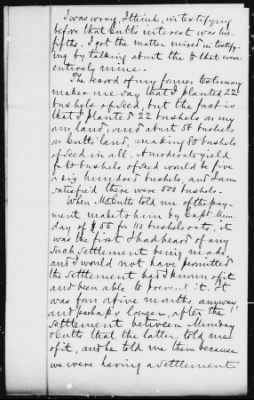 I was wrong, I think, in testifying
before that Cutts interest was two
fifths. I got the matter mixed in testify-
ing by talking about the that were
entirely mine.
The record of my former testimony
makes me say that I planted 22
bushels of seed, but the fact is
that I planted 22 bushels on my
own land, and about 58 bushels
on Cutts' land, making 80 bushels
of seed in all. A moderate yield
for 80 bushels of seed would be five
or six hundred bushels, and I am
satisfied there were 500 bushels.
When Mr Cutts told me of the pay-
ment made to him by Capt. Mun-
day of $55 for 110 bushels oats, it
was the first I had heard of any
such settlement being made,
and I would not have permitted
the settlement had I known of it
and been able to prevent it. It
was four or five months anyway,
and perhaps longer, after the
settlement between Munday
& Cutts that the latter told me
of it, and he told me then because
we were having a settlement